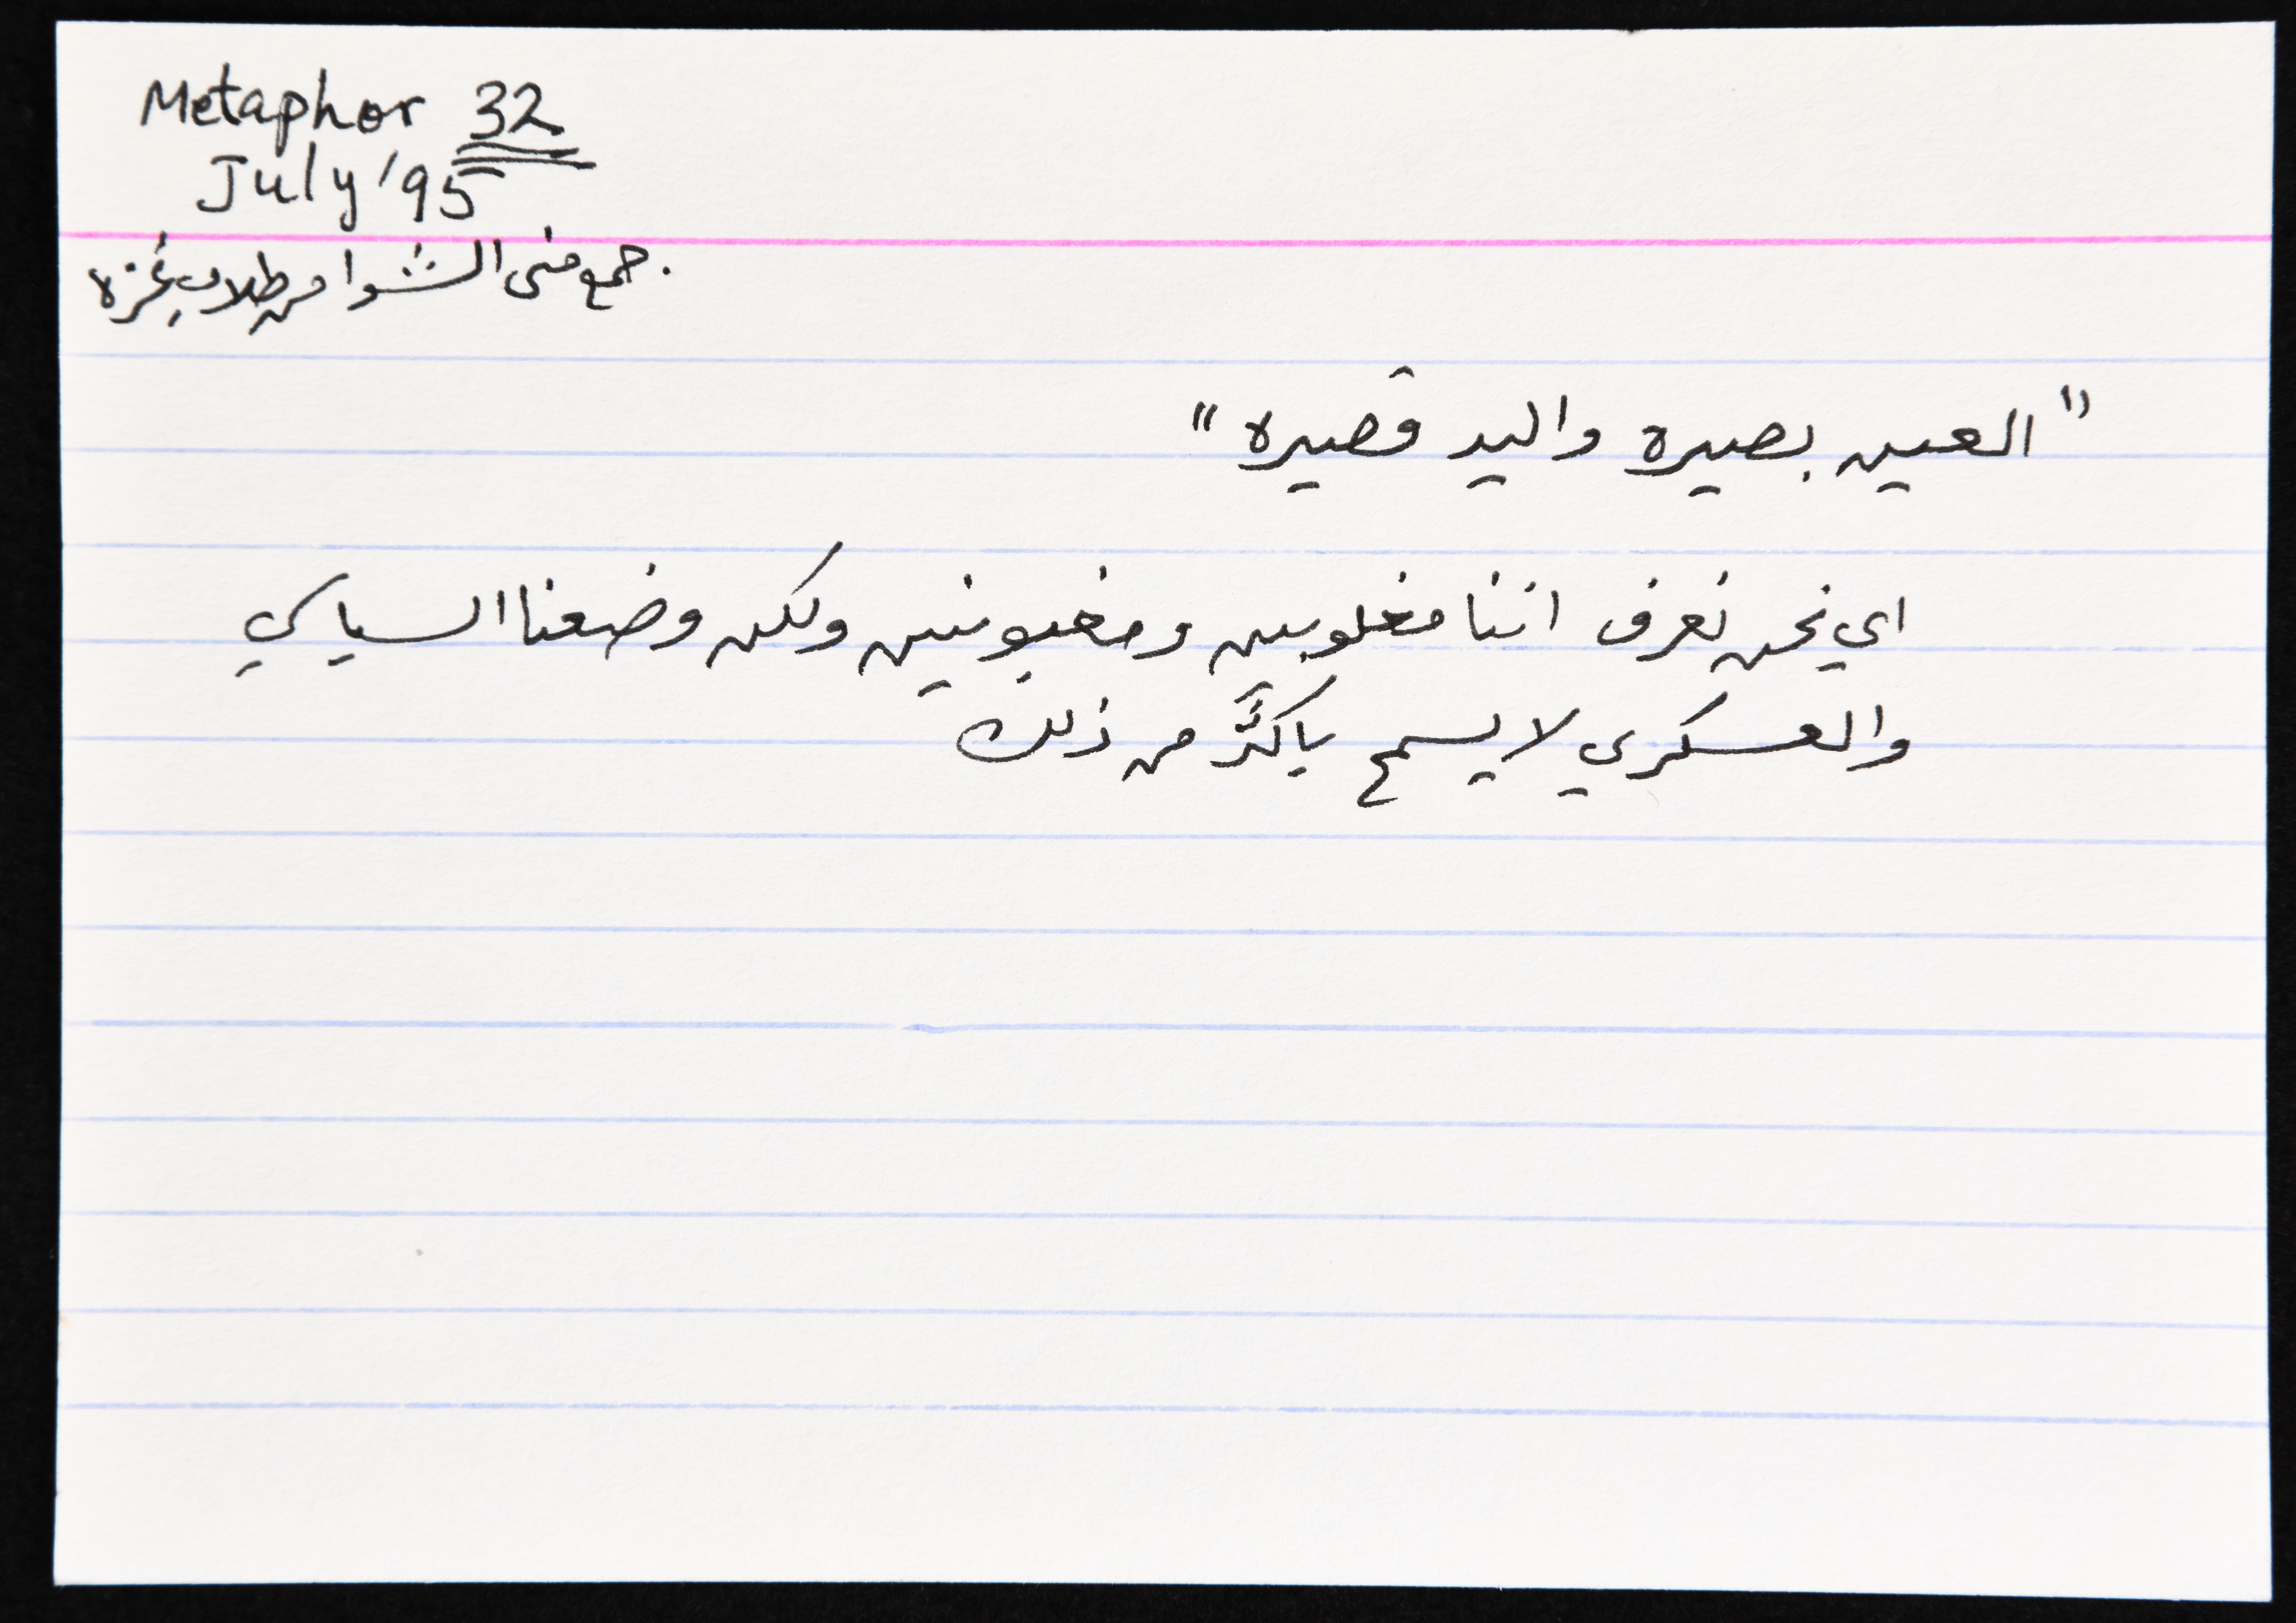 Metaphor 32
July '95
جمع منى الشوا من طلاب غزه
"العين بصيره واليد قصيره"
اي نحن نعرف اننا مغلوبين ومغبونين ولكن وضعنا السياسي
والعسكري لا يسمح باكثر من ذلك